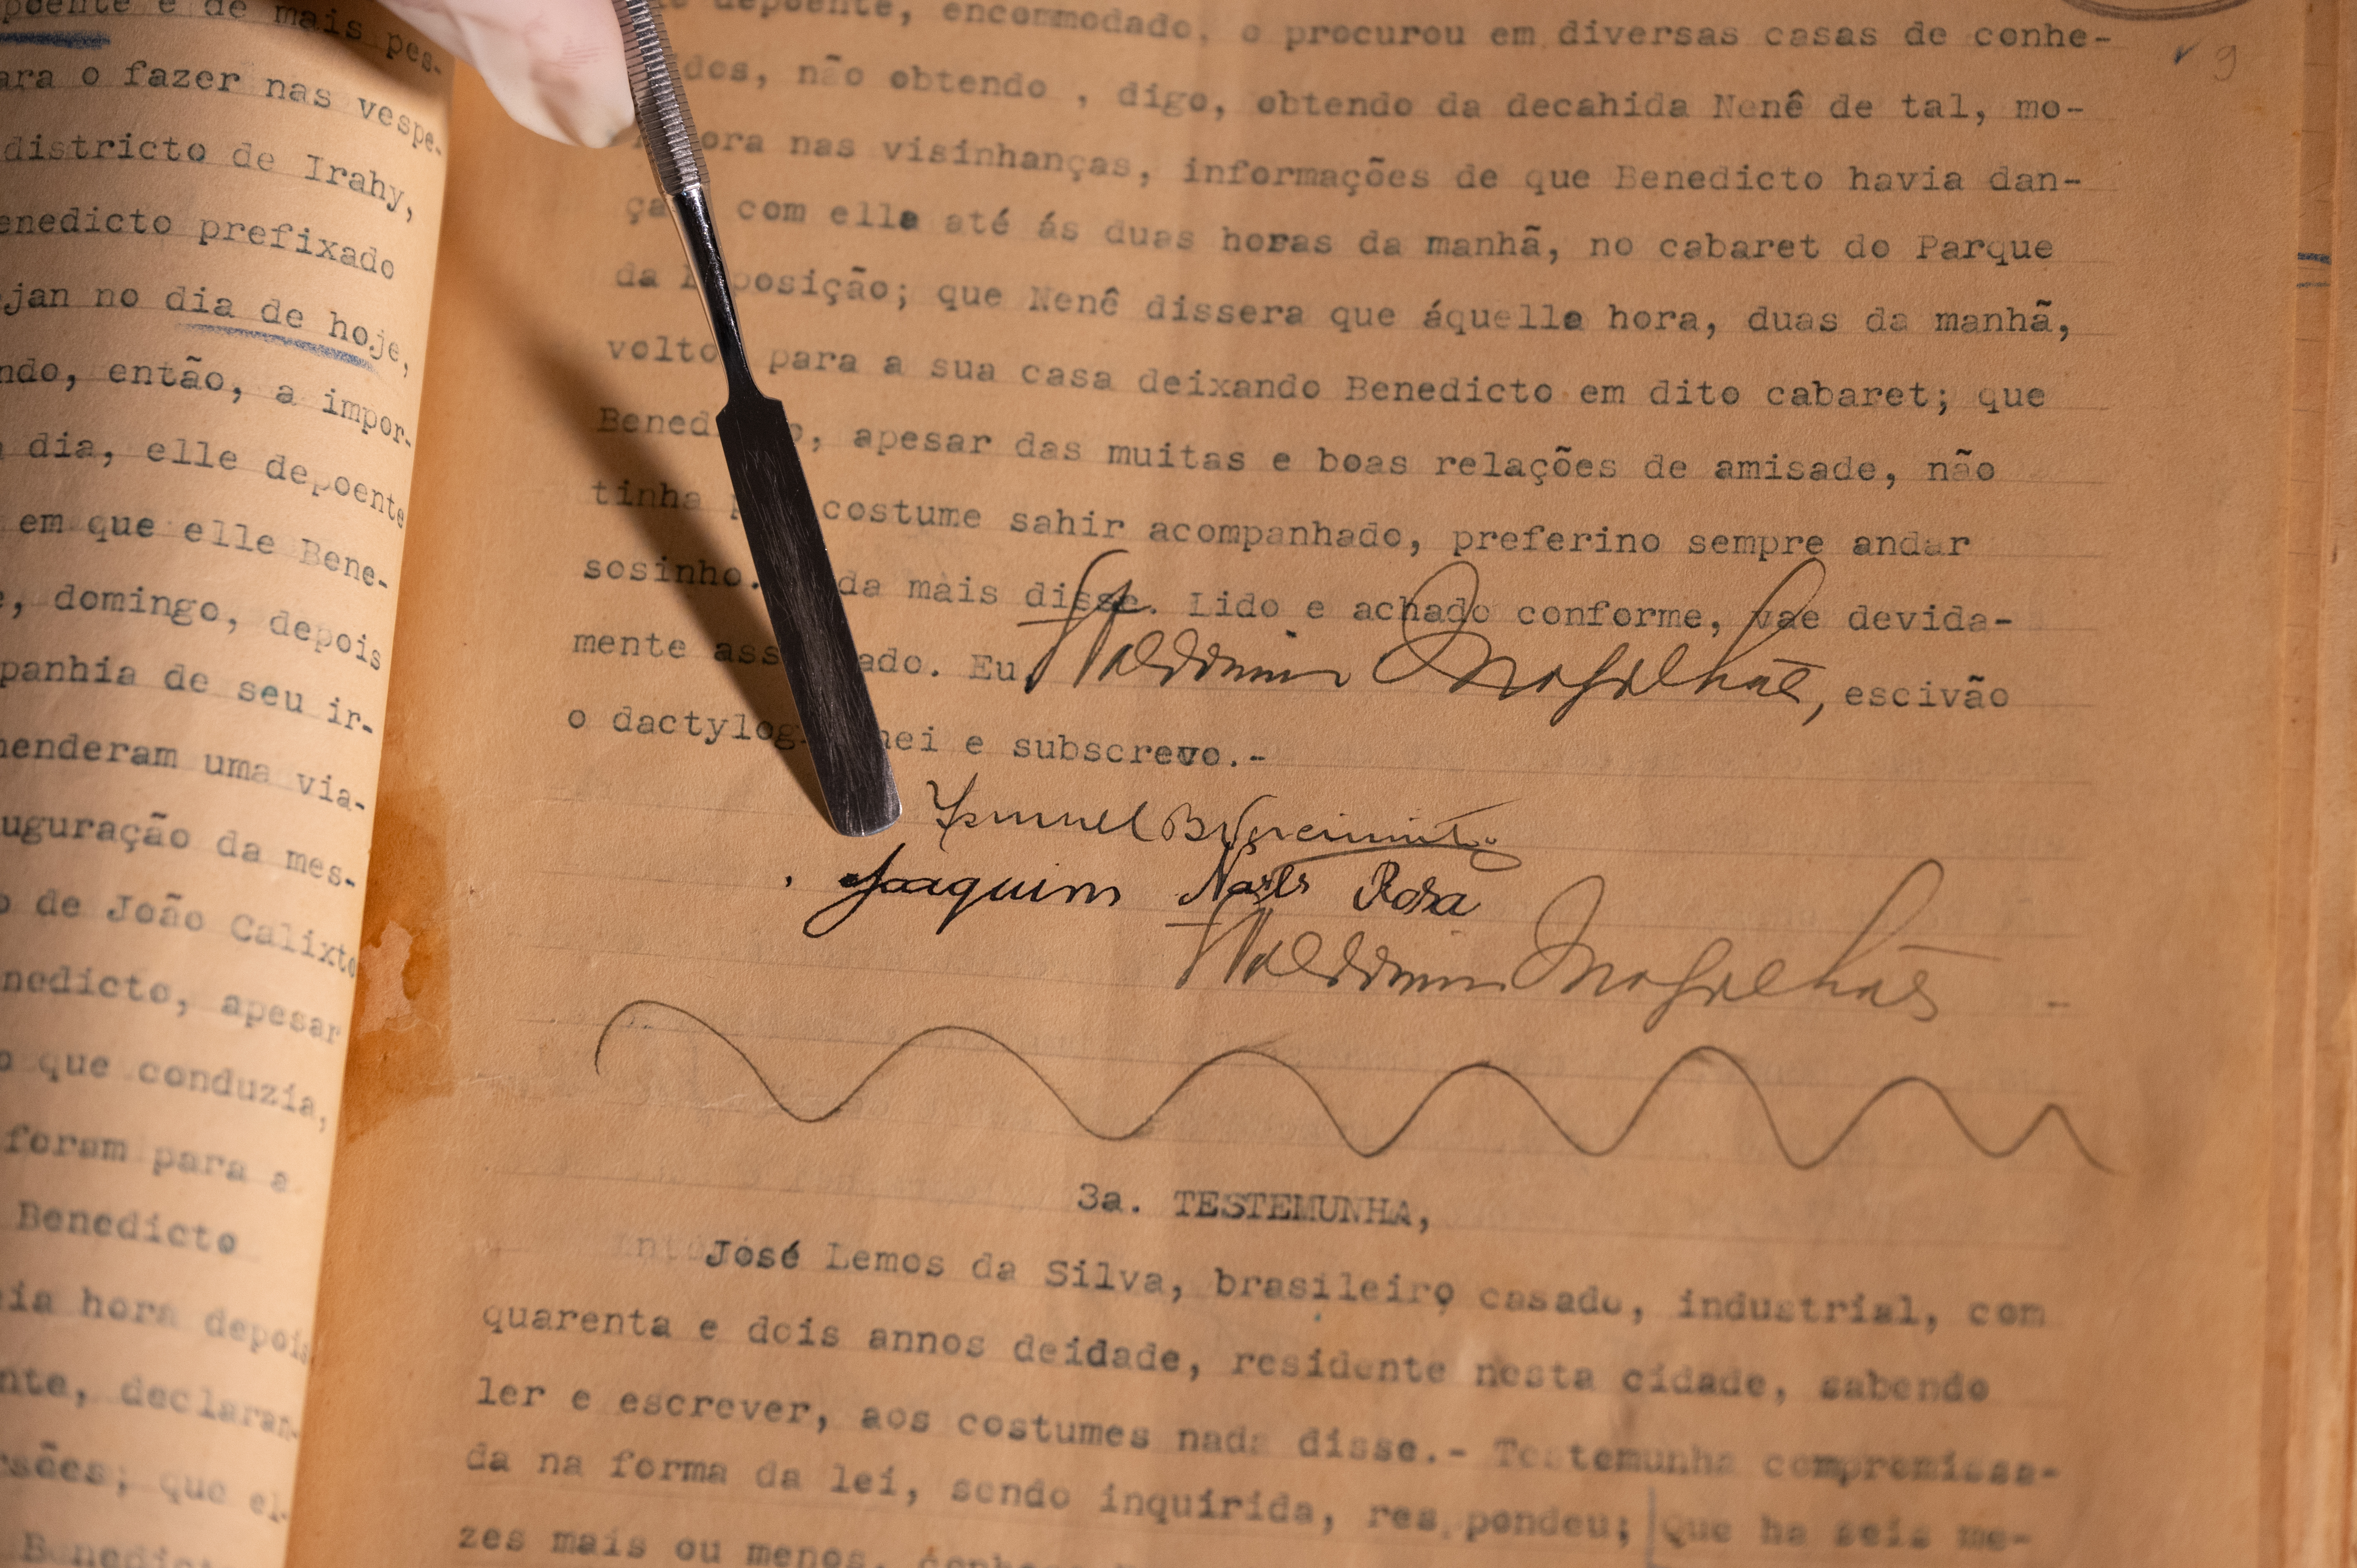 poente e de mais pes-
ara o fazer nas vespe-
districto de Irahy,
enedicto prefixado
jan no dia de hoje,
ndo, então, a impor-
dia, elle depoente
em que elle Bene-
, domingo, depois
panhia de seu ir-
henderam uma via-
uguração da mes-
o de João Calixto
nedicto, apesar
o que conduzia,
foram para a
Benedicto
eia hora depois
nte, declaran-
rsões; que el-
Benedict
depoente, encommodado, o procurou em diversas casas de conhe-
dos, não obtendo , digo, obtendo da decahida Nenê de tal, mo-
ora nas visinhanças, informações de que Benedicto havia dan-
ça com ella até ás duas horas da manhã, no cabaret do Parque
da posição; que Nenê dissera que áquella hora, duas da manhã,
volto para a sua casa deixando Benedicto em dito cabaret; que
Bened o, apesar das muitas e boas relações de amisade, não
tinha p costume sahir acompanhado, preferino sempre andar
sosinho. da mais disse. Lido e achado conforme, vae devida-
mente ass ado. Eu, Waldomiro Magalhães, escivão
o dactylog hei e subscrevo.-
Joaquim Rosa
Waldomiro Magalhães -
3a. TESTEMUNHA,
José Lemos da Silva, brasileiro casado, industrial, com
quarenta e dois annos deidade, residente nesta cidade, sabendo
ler e escrever, aos costumes nada disse.- Testemunha compromissa-
da na forma da lei, sendo inquirida, res pondeu; Que ha seis me-
zes mais ou menos,
9